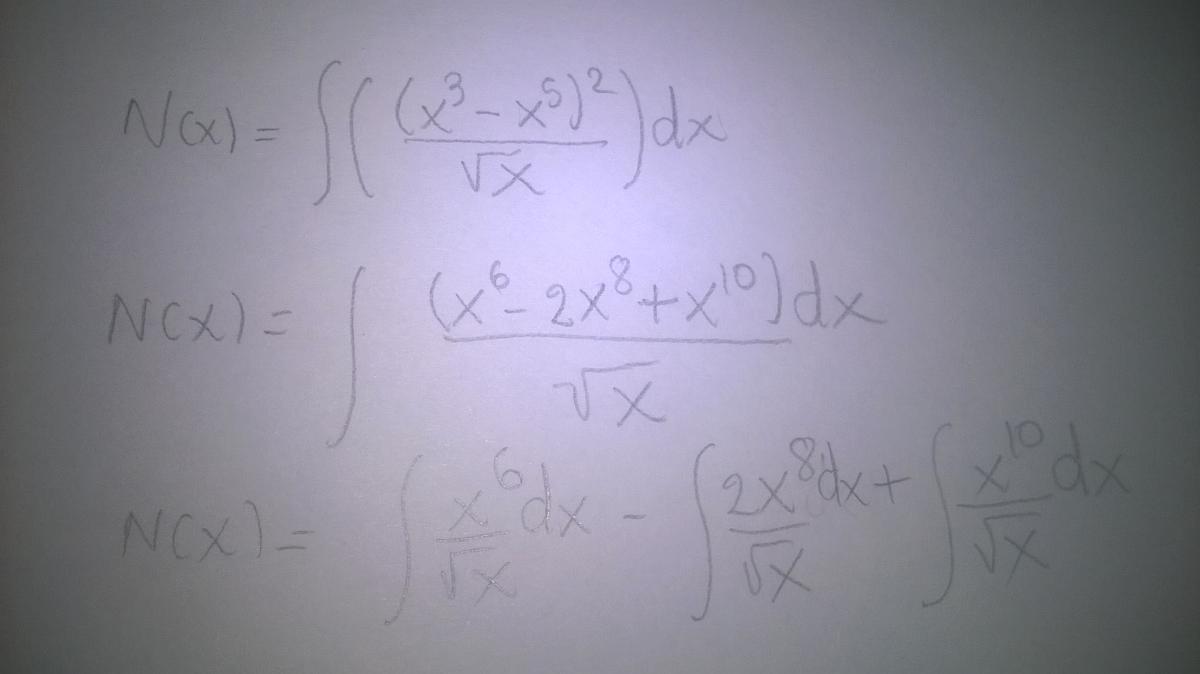 N(x) = ∫ ( (x³ - x⁵)² / √x ) dx
N(x) = ∫ (x⁶ - 2x⁸ + x¹⁰) dx / √x
N(x) = ∫ x⁶ dx / √x - ∫ 2x⁸ dx / √x + ∫ x¹⁰ dx / √x